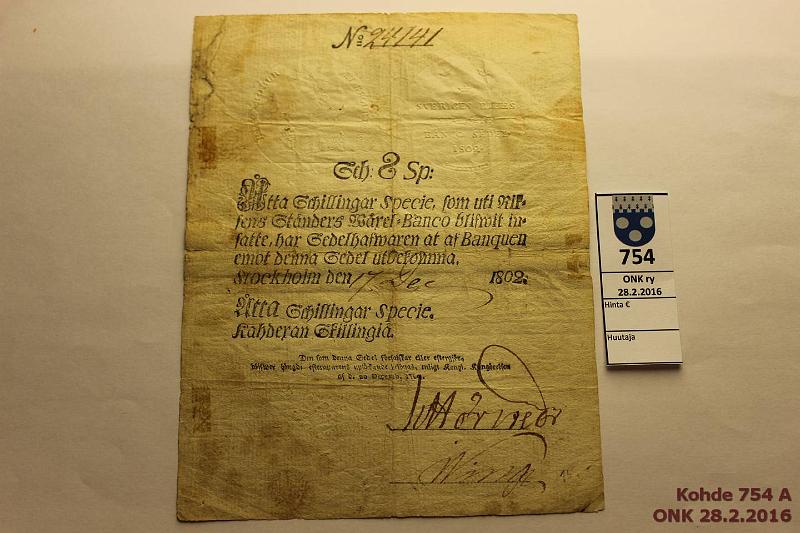 No 24141
SVERIGES RIKES
BANCO SEDEL
1802.
Sch: 8 Sp:
Åtta Schillingar Specie, som uti Rik-
sens Ständers Wäxel-Banco blifwit in-
satte, har Sedelhafwaren at af Banquen
emot denna Sedel utbekomma,
Stockholm den 17 Dec 1802.
Åtta Schillingar Specie.
Kahdexan Skillingiä.
Den som denna Sedel förfalskar eller eftergiör,
754
ONK ry
28.2.2016
Hinta €
Huutaja
Kohde 754 A
ONK 28.2.2016